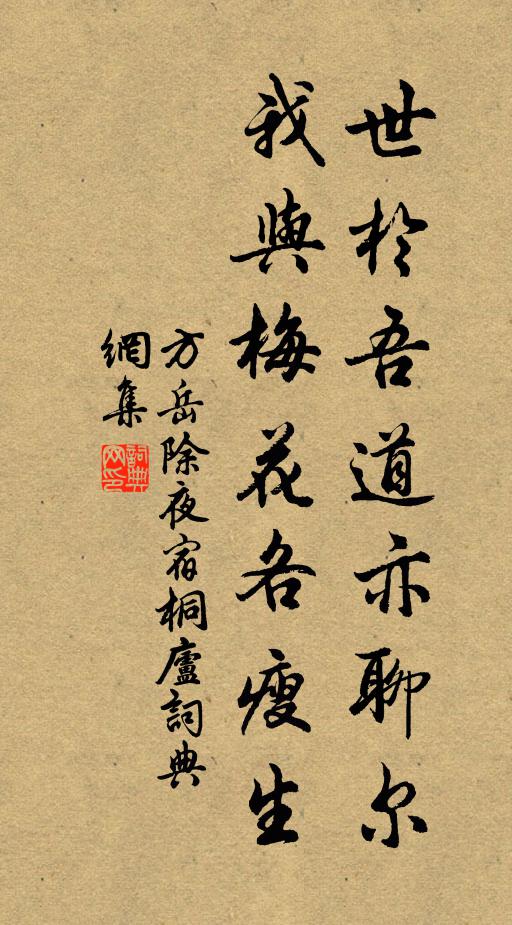 世於吾道亦聊尔
我與梅花各瘦生
方岳除夜宿桐廬詞典
網集
詞典網印